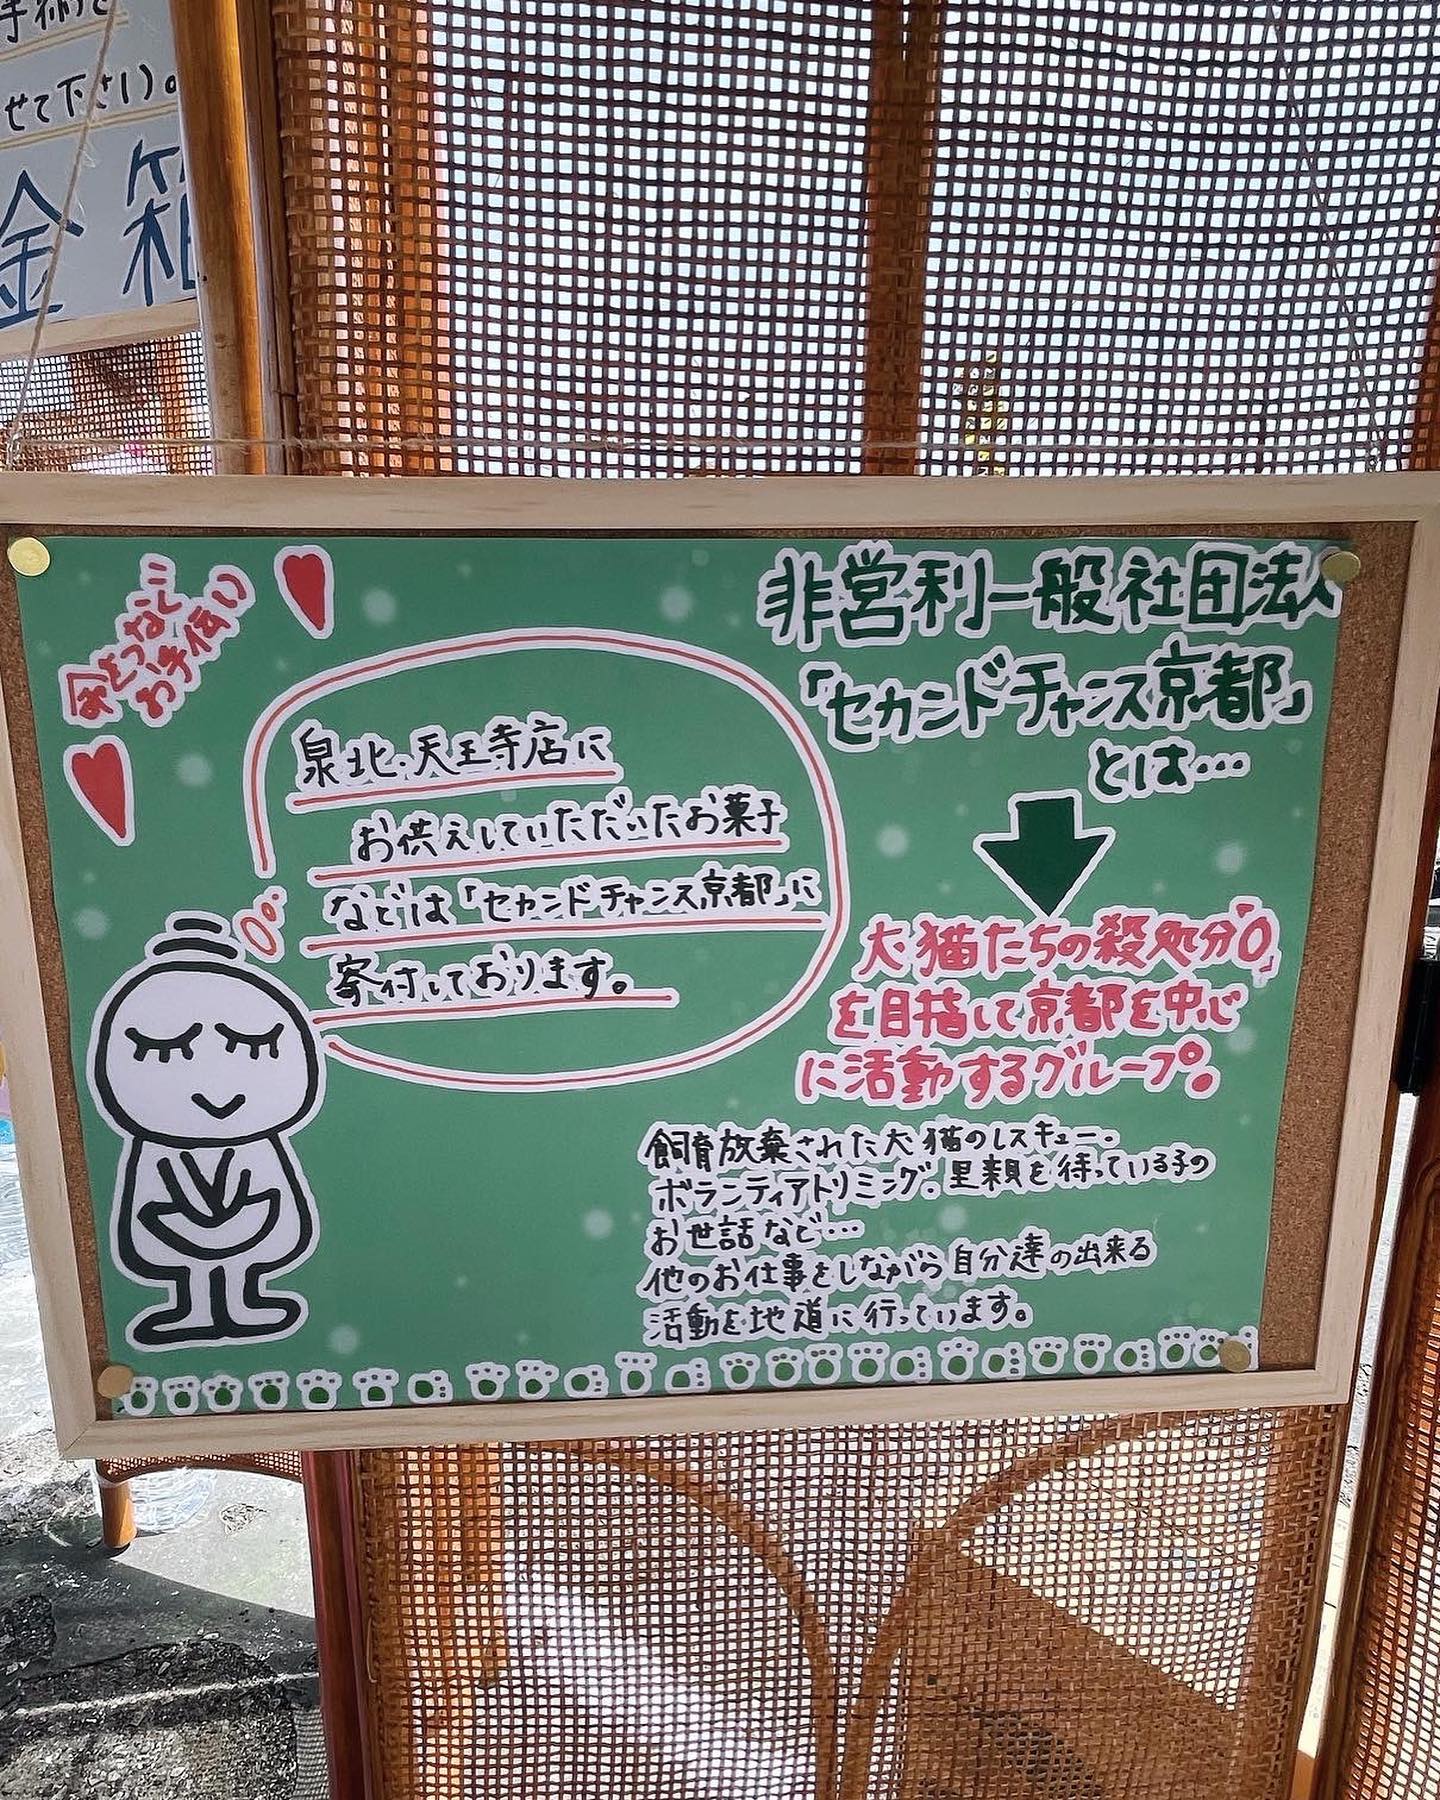 手術を
せて下さい)。
金箱
命をつなぐ
お手伝い
泉北・天王寺店に
お供えしていただいたお菓子
などは「セカンドチャンス京都」に
寄付しております。
非営利一般社団法人
「セカンドチャンス京都」
とは…
犬猫たちの殺処分0」
を目指して京都を中心
に活動するグループ。
飼育放棄された犬猫のレスキュー・
ボランティアトリミング・里親を待っている子の
お世話など…
他のお仕事をしながら自分達の出来る
活動を地道に行っています。